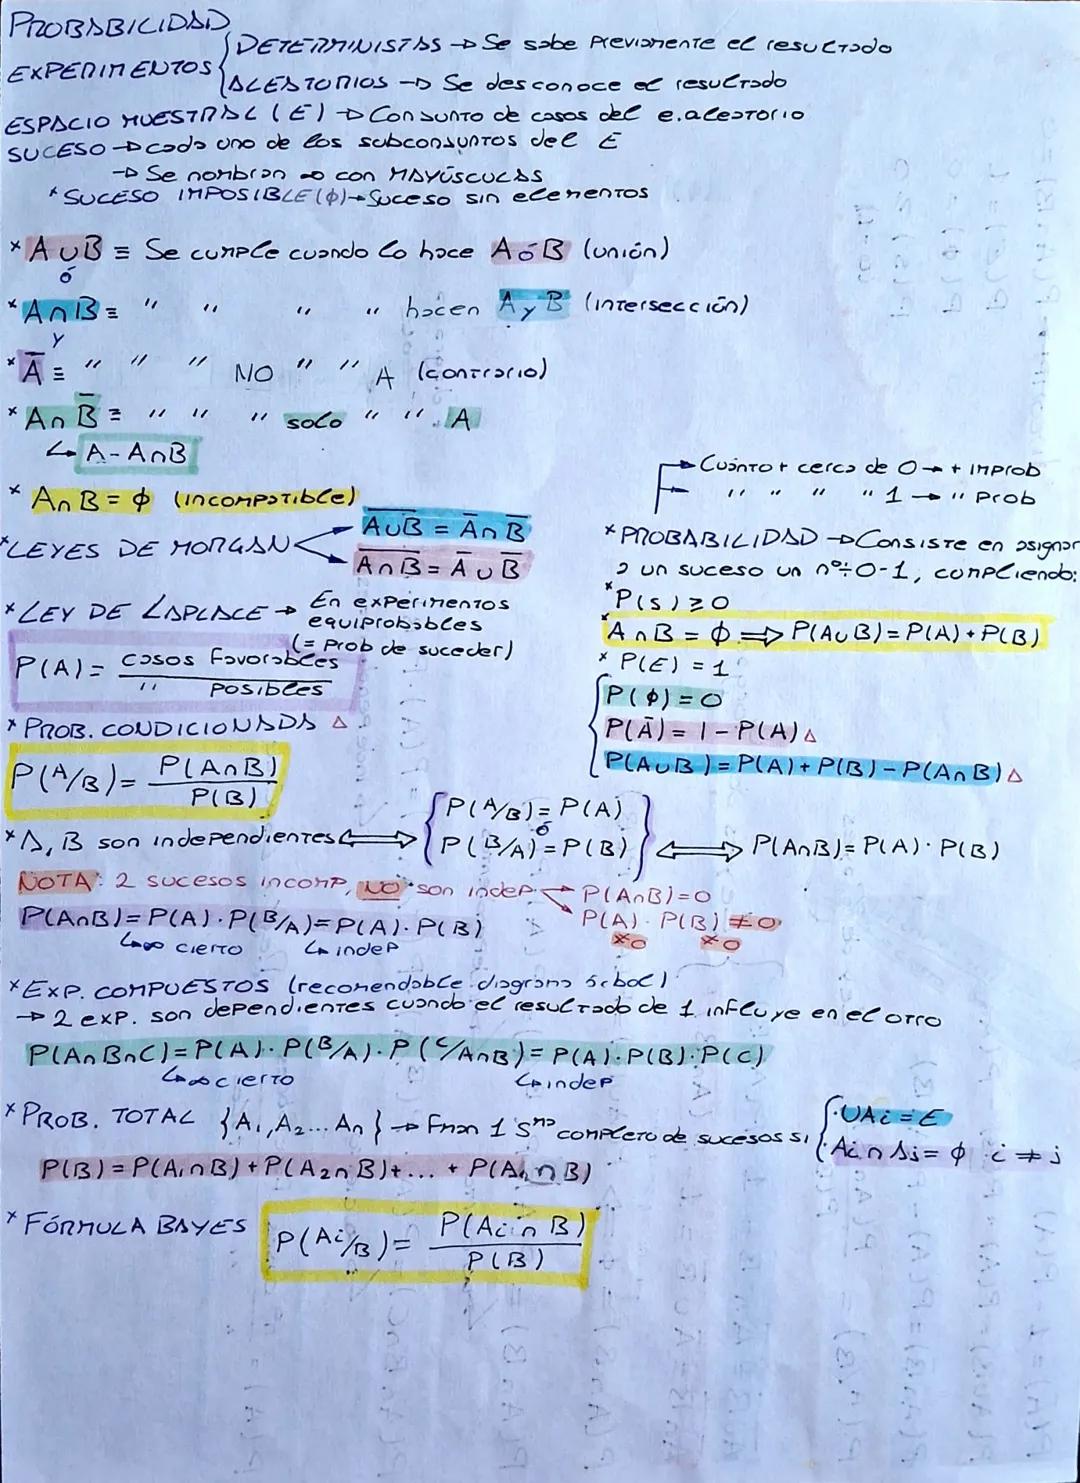 PROBABILIDAD
EXPERIMENTOS { DETERMINISTAS → Se sabe previamente el resultado
{ ALEATORIOS → Se desconoce el resultado
ESPACIO MUESTRAL (E) → Conjunto de casos del e.aleatorio
SUCESO → cada uno de los subconjuntos del E
→ Se nombran ∞ con MAYÚSCULAS
* SUCESO IMPOSIBLE (ϕ) → Suceso sin elementos
* A∪B ≡ Se cumple cuando lo hace A ó B (unión)
ó
* A∩B ≡ " " " " hacen A y B (intersección)
y
* A̅ ≡ " " " NO " " A (contrario)
* A∩B̅ ≡ " " " solo " " A
↳ A - A∩B
* A∩B = ϕ (incompatible)
*LEYES DE MORGAN < \overline{A∪B} = A̅∩B̅
\overline{A∩B} = A̅∪B̅
* LEY DE LAPLACE → En experimentos
equiprobables
(= prob de suceder)
P(A) = casos favorables / " posibles
* PROB. CONDICIONADA △
P(A/B) = P(A∩B) / P(B)
→ Cuanto + cerca de 0 → + improb
→ " " " " 1 → " Prob
* PROBABILIDAD → Consiste en asignar
a un suceso un nº÷0-1, cumpliendo:
* P(S) ≥ 0
* A∩B = ϕ ⟹ P(A∪B) = P(A) + P(B)
* P(E) = 1
{ P(ϕ) = 0
P(A̅) = 1 - P(A) △
P(A∪B) = P(A) + P(B) - P(A∩B) △
* A, B son independientes ⟺ { P(A/B) = P(A) ó P(B/A) = P(B) } ⟺ P(A∩B) = P(A) · P(B)
NOTA: 2 sucesos incomp, NO son indep. → P(A∩B) = 0
→ P(A) · P(B) ≠ 0
≠0 ≠0
P(A∩B) = P(A) · P(B/A) = P(A) · P(B)
↳ ∞ cierto ↳ indep
* EXP. COMPUESTOS (recomendable diagrama árbol)
→ 2 exp. son dependientes cuando el resultado de 1 influye en el otro
P(A∩B∩C) = P(A) · P(B/A) · P(C/A∩B) = P(A) · P(B) · P(C)
↳ ∞ cierto ↳ indep
* PROB. TOTAL {A₁, A₂... An} → Fman 1 Sᵐᵃ completo de sucesos si { · ∪Ai = E
· Ai∩Aj = ϕ i ≠ j
P(B) = P(A₁∩B) + P(A₂∩B) + ... + P(An∩B)
* FÓRMULA BAYES P(Ai/B) = P(Ai∩B) / P(B)